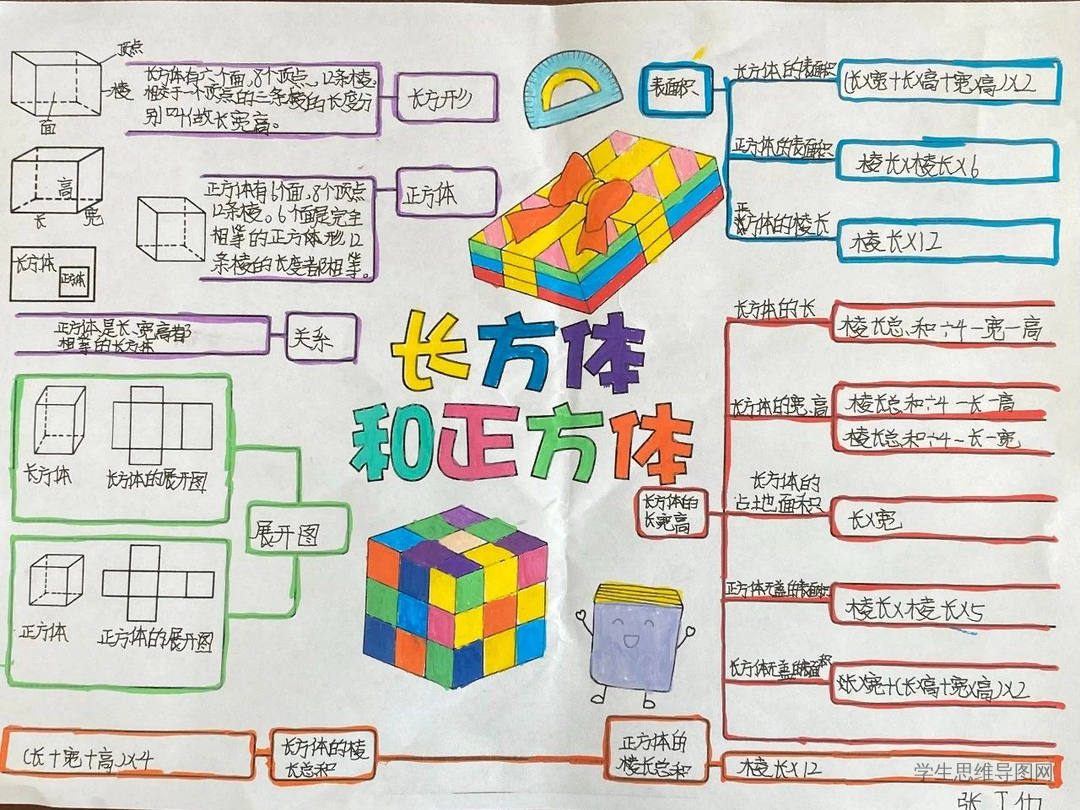 顶点
棱
面
长方体有六个面,8个顶点,12条棱。
相交于一个顶点的三条棱的长度分
别叫做长宽高。
长方形
高
长
宽
正方体有6个面,8个顶点
12条棱。6个面是完全
相等的正方体形12
条棱的长度都相等。
正方体
长方体
正方体
正方体是长、宽、高都
相等的长方体
关系
长方体
长方体的展开图
展开图
正方体
正方体的展开图
长方体
和正方体
表面积
长方体的表面积
(长×宽+长×高+宽×高)×2
正方体的表面积
棱长×棱长×6
正方体的棱长
棱长×12
长方体的
长宽高
长方体的长
棱长总和÷4-宽-高
长方体的宽、高
棱长总和÷4-长-高
棱长总和÷4-长-宽
长方体的
占地面积
长×宽
正方体无盖的表面积
棱长×棱长×5
长方体无盖的表面积
长×宽+(长×高+宽×高)×2
(长+宽+高)×4
长方体的棱
长总和
正方体的
棱长总和
棱长×12
学生思维导图网
张